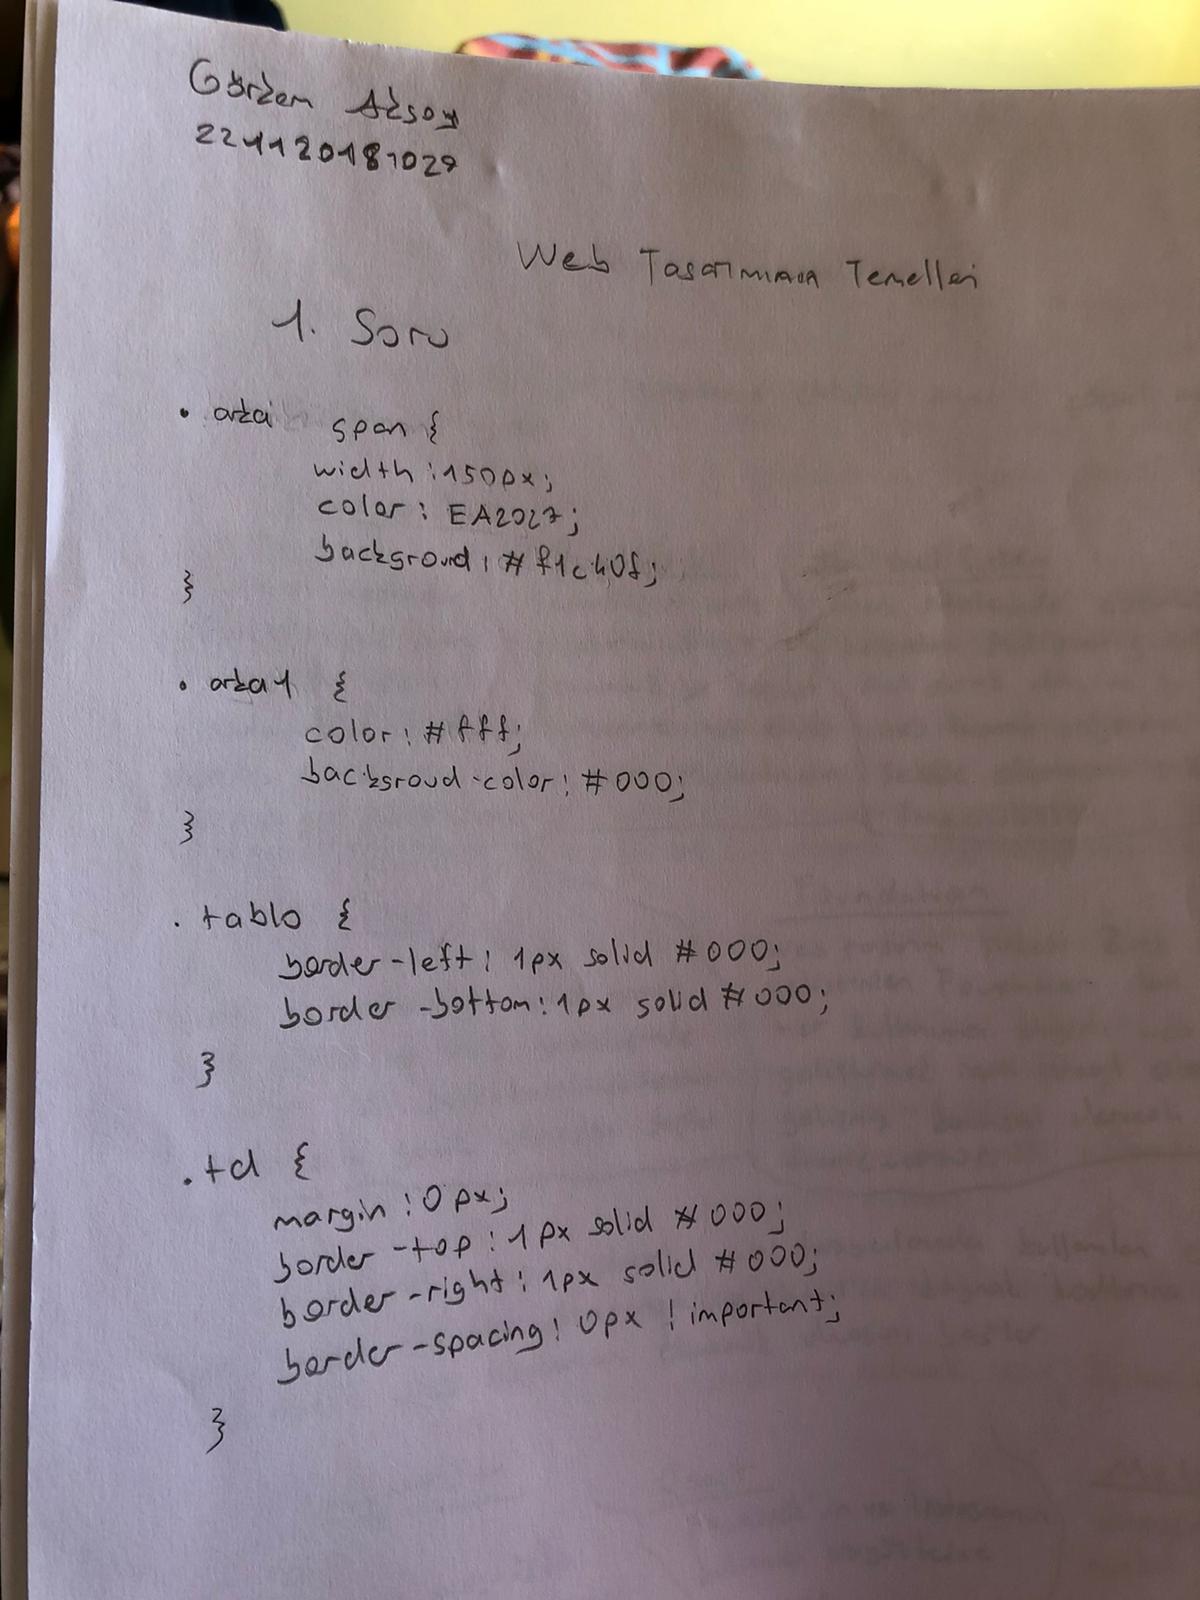 Görkem Aksoy
221120181029
Web Tasarımının Temelleri
1. Soru
. arka span {
width : 150px;
color : EA2027;
backgroud : # f1c40f;
}
. arka1 {
color : # fff;
backgroud-color : # 000;
}
. tablo {
border-left : 1px solid # 000;
border-bottom : 1px solid # 000;
}
. td {
margin : 0px;
border-top : 1px solid # 000;
border-right : 1px solid # 000;
border-spacing : 0px ! important;
}